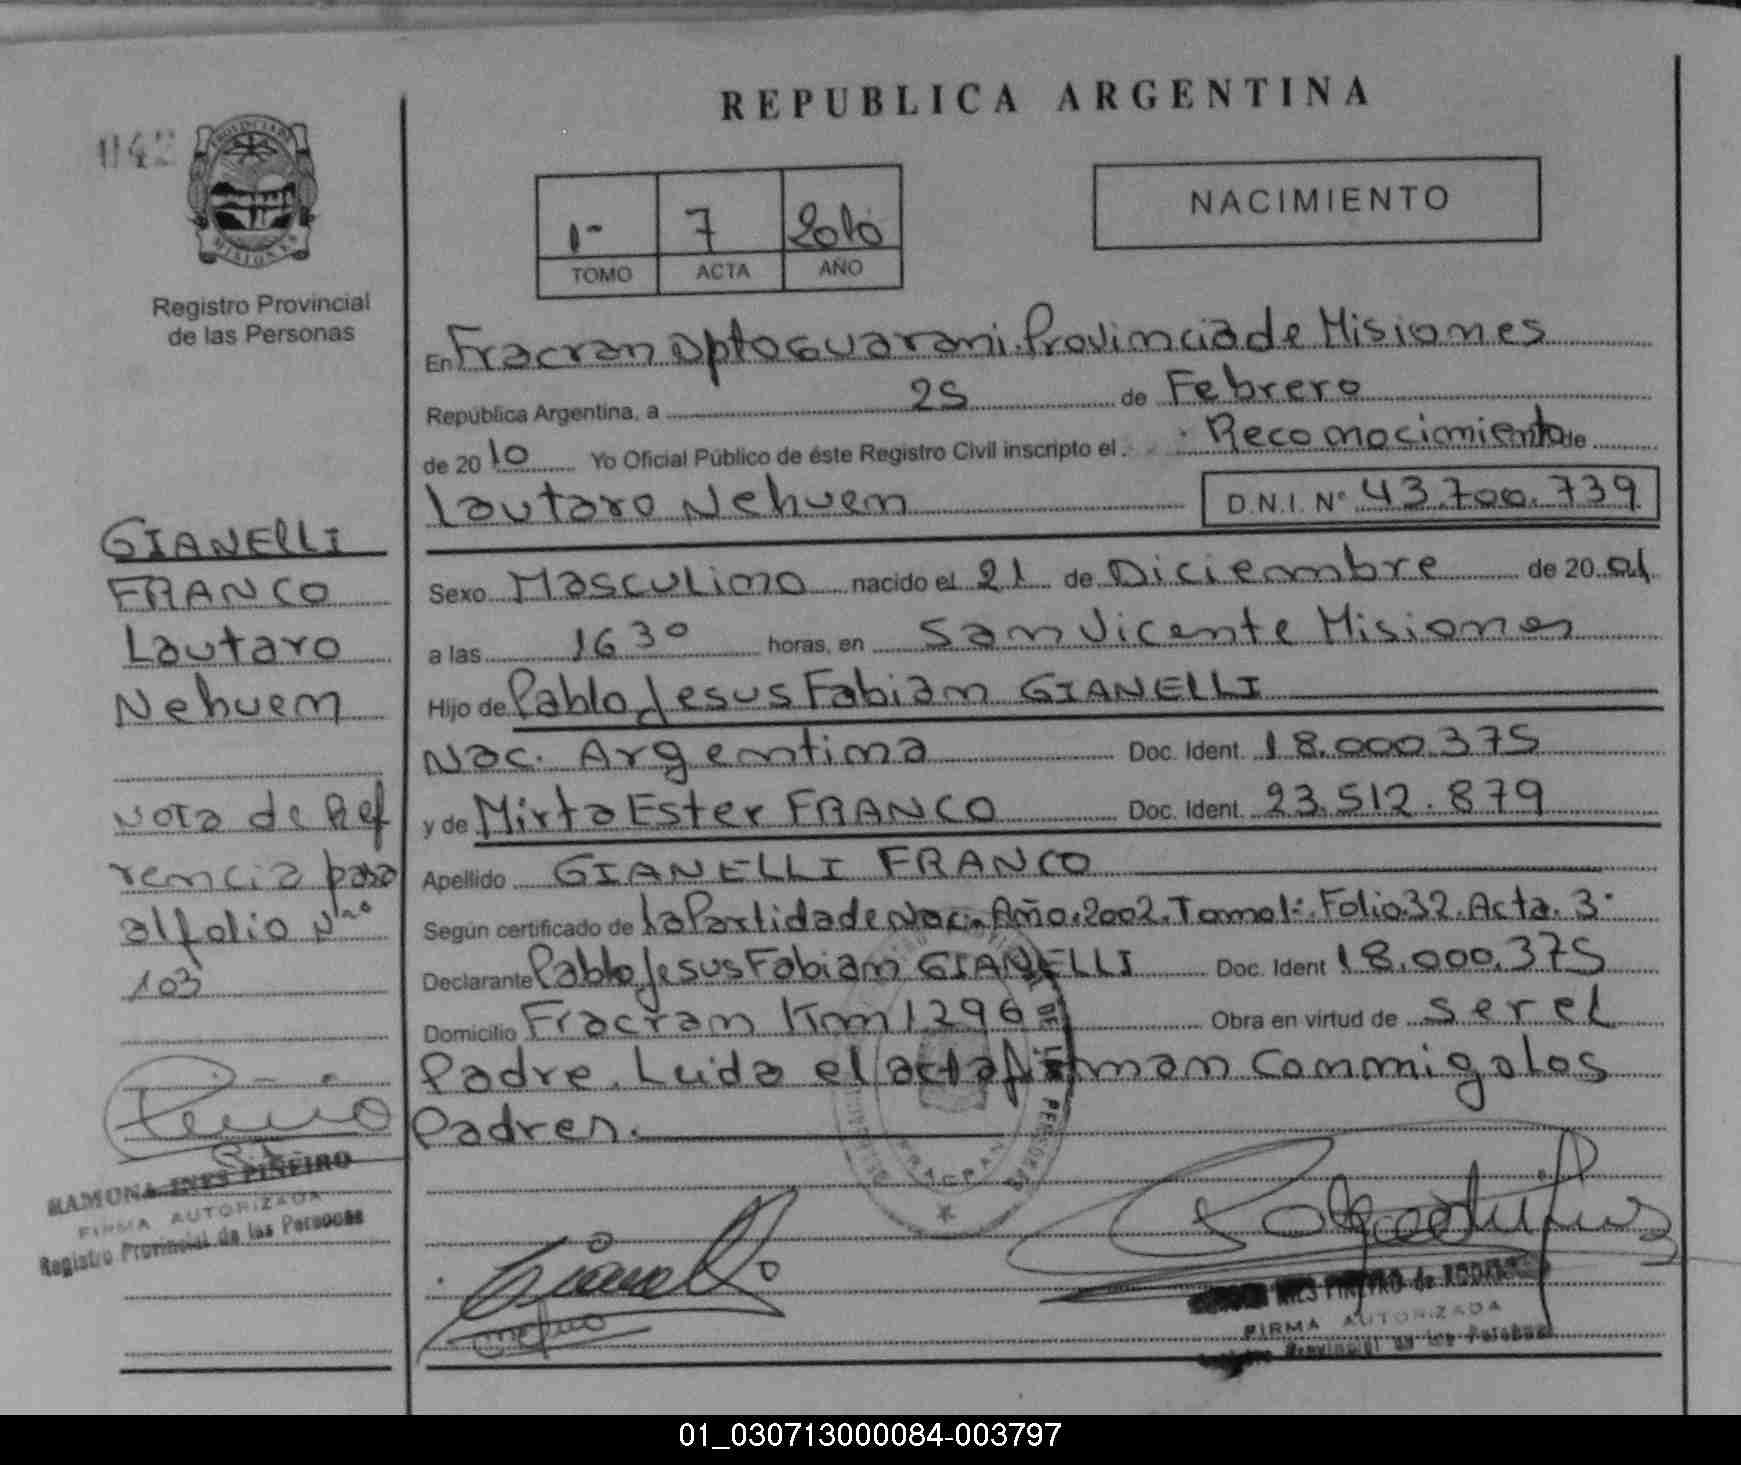 REPUBLICA ARGENTINA
042
PROVINCIA DE
MISIONES
Registro Provincial
de las Personas
1- 7 2010
TOMO ACTA AÑO
NACIMIENTO
En Fracran Dpto Guarani. Provincia de Misiones
República Argentina, a 25 de Febrero
de 2010 Yo Oficial Público de éste Registro Civil inscripto el Reconocimiento de
Lautaro Nehuem D.N.I. Nº 43.700.739
Sexo Masculino nacido el 21 de Diciembre de 20 01
a las 16 30 horas, en San Vicente Misiones
Hijo de Pablo Jesus Fabian GIANELLI
Nac. Argentina Doc. Ident. 18.000.375
y de Mirta Ester FRANCO Doc. Ident. 23.512.879
Apellido GIANELLI FRANCO
Según certificado de la Partida de Nac. Año 2002. Tomo 1-. Folio 32. Acta. 3.
Declarante Pablo Jesus Fabian GIANELLI Doc. Ident 18.000.375
Domicilio Fracran Km 1296 Obra en virtud de ser el
Padre. Leida el acta firman conmigo los
Padres.
GIANELLI
FRANCO
Lautaro
Nehuem
Nota de Ref
rencia pasa
al folio Nro
103
RAMONA INES PIÑEIRO
FIRMA AUTORIZADA
Registro Provincial de las Personas
FRACRAN
INES PIÑEIRO de
FIRMA AUTORIZADA
Provincial de las Personas
01_030713000084-003797